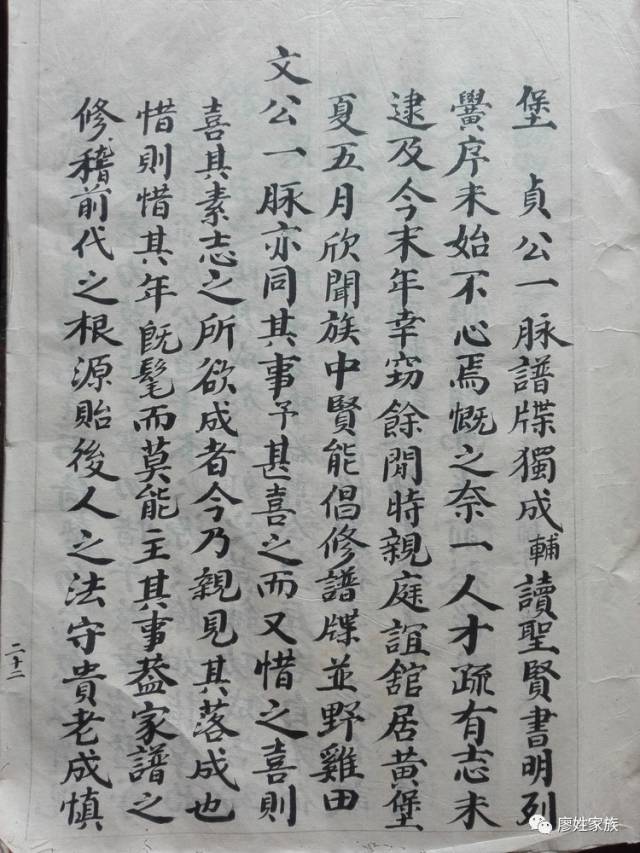 堡　貞公一脉譜牒獨成輔讀聖賢書明列
黌序未始不心焉慨之奈一人才疏有志未
逮及今末年幸窃餘閒時親庭誼舘居黄堡
夏五月欣聞族中賢能倡修譜牒並野雞田
文公一脉亦同其事予甚喜之而又惜之喜則
喜其素志之所欲成者今乃親見其落成也
惜則惜其年既髦而莫能主其事葢家譜之
修稽前代之根源貽後人之法守貴老成慎
二十二
廖姓家族